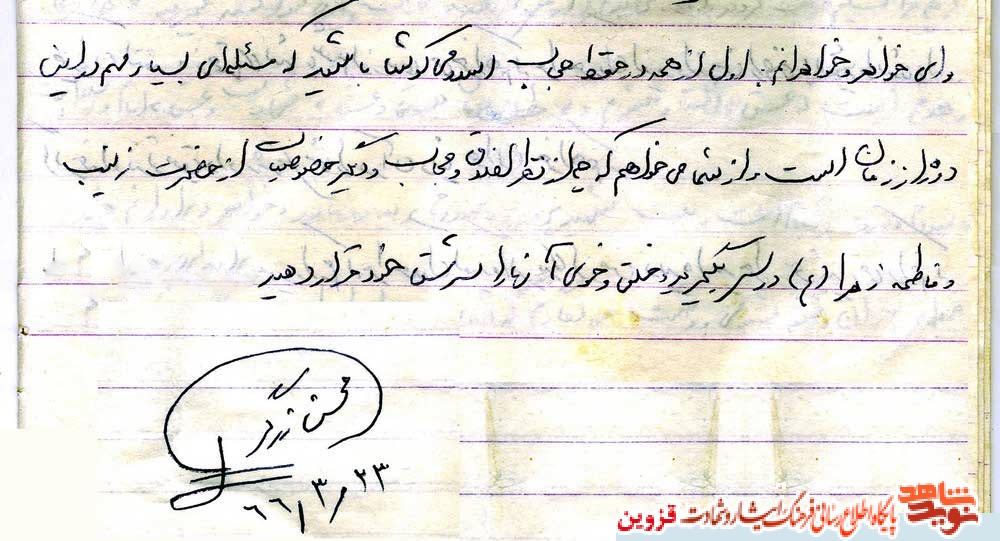 وای خواهر و خواهرانم. اول از همه در حفظ حجاب اسلامی کوشا باشید که مسئله‌ای بسیار مهم در این
دوره از زمان است و از شما می خواهم که چه از نظر اخلاق و حجاب و دیگر خصوصیات از حضرت زینب
و فاطمه زهرا (ع) درس بگیرید و خلق و خوی آنها را سرمشق خود قرار دهید
محسن زرگر
۶۶/۳/۲۳
نوید شاهد
پایگاه اطلاع رسانی فرهنگ ایثار و شهادت قزوین